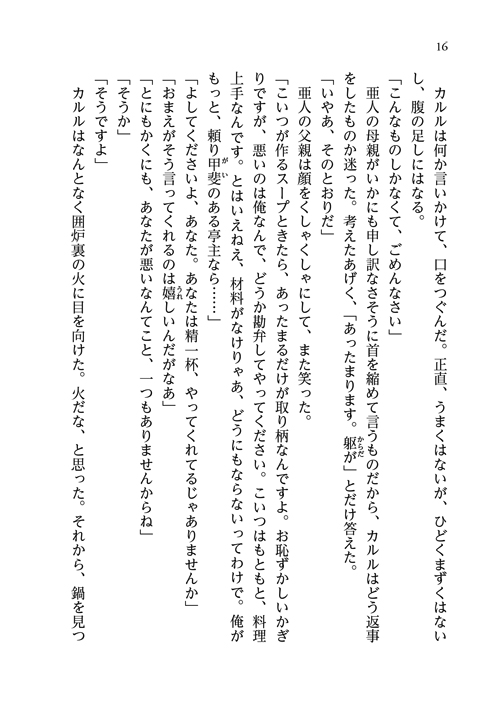 16
　カルルは何か言いかけて、口をつぐんだ。正直、うまくはないが、ひどくまずくはない
し、腹の足しにはなる。
「こんなものしかなくて、ごめんなさい」
　亜人の母親がいかにも申し訳なさそうに首を縮めて言うものだから、カルルはどう返事
をしたものか迷った。考えたあげく、「あったまります。躯が」とだけ答えた。
「いやあ、そのとおりだ」
　亜人の父親は顔をくしゃくしゃにして、また笑った。
「こいつが作るスープときたら、あったまるだけが取り柄なんですよ。お恥ずかしいかぎ
りですが、悪いのは俺なんで、どうか勘弁してやってください。こいつはもともと、料理
上手なんです。とはいえねえ、材料がなけりゃあ、どうにもならないってわけで。俺が
もっと、頼り甲斐のある亭主なら……」
「よしてくださいよ、あなた。あなたは精一杯、やってくれてるじゃありませんか」
「おまえがそう言ってくれるのは嬉しいんだがなあ」
「とにもかくにも、あなたが悪いなんてこと、一つもありませんからね」
「そうか」
「そうですよ」
　カルルはなんとなく囲炉裏の火に目を向けた。火だな、と思った。それから、鍋を見つ